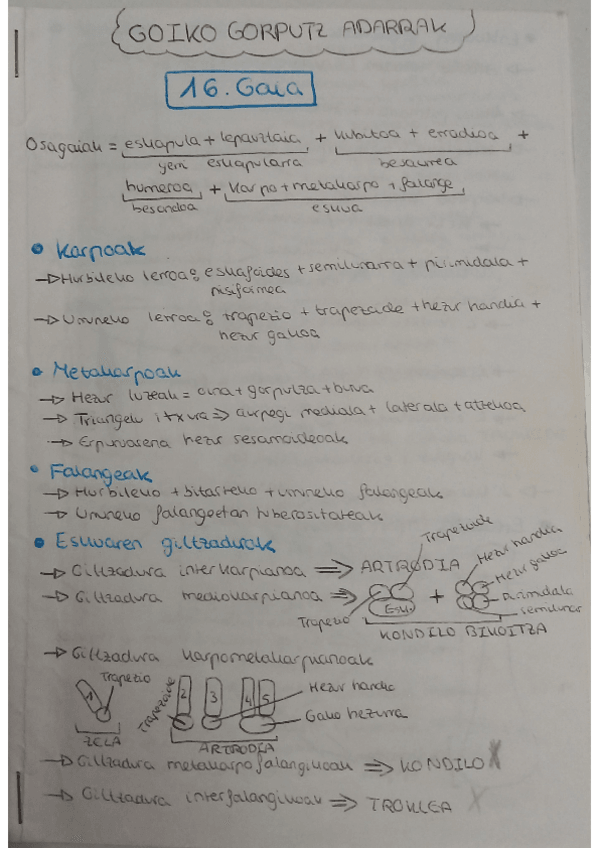 GOIKO GORPUTZ ADARRAK
16. Gaia
Osagaiak = eskapula + lepauztaia + kubitoa + erradioa +
gerri eskapularra
besaurrea
humeroa + karpo + metakarpo + falange
besondoa
eskua
• Karpoak
→ Hurbileko lerroa: eskafoides + semilunarra + piramidala +
pisiformea
→ Urruneko lerroa: trapezio + trapezoide + hezur handia +
hezur gakoa
• Metakarpoak
→ Hezur luzeak = oina + gorputza + burua
→ Triangelu itxura => aurpegi mediala + laterala + atzekoa
→ Erpuruarena hezur sesamoideoak
• Falangeak
→ Hurbileko + bitarteko + urruneko falangeak
→ Urruneko falangeetan tuberositateak
• Eskuaren giltzadurak
→ Giltzadura interkarpianoa => ARTRODIA
Trapezoide
Hezur handia
Hezur gakoa
→ Giltzadura mediokarpianoa =>
Esk.
+
Piramidala
semilunar
Trapezio
KONDILO BIKOITZA
→ Giltzadura karpometakarpianoak
Trapezio
1
Trapezoide
2
3
4
5
Hezur handia
Gako hezurra
ZELA
ARTRODIA
→ Giltzadura metakarpofalangikoak => KONDILO X
→ Giltzadura interfalangikoak => TROKLEA X